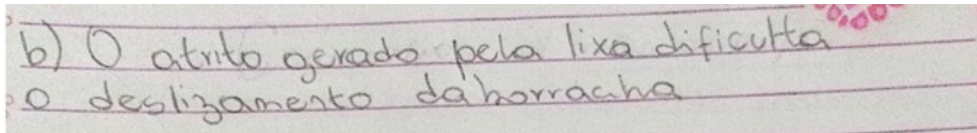 b) O atrito gerado pela lixa dificulta
o deslizamento da borracha